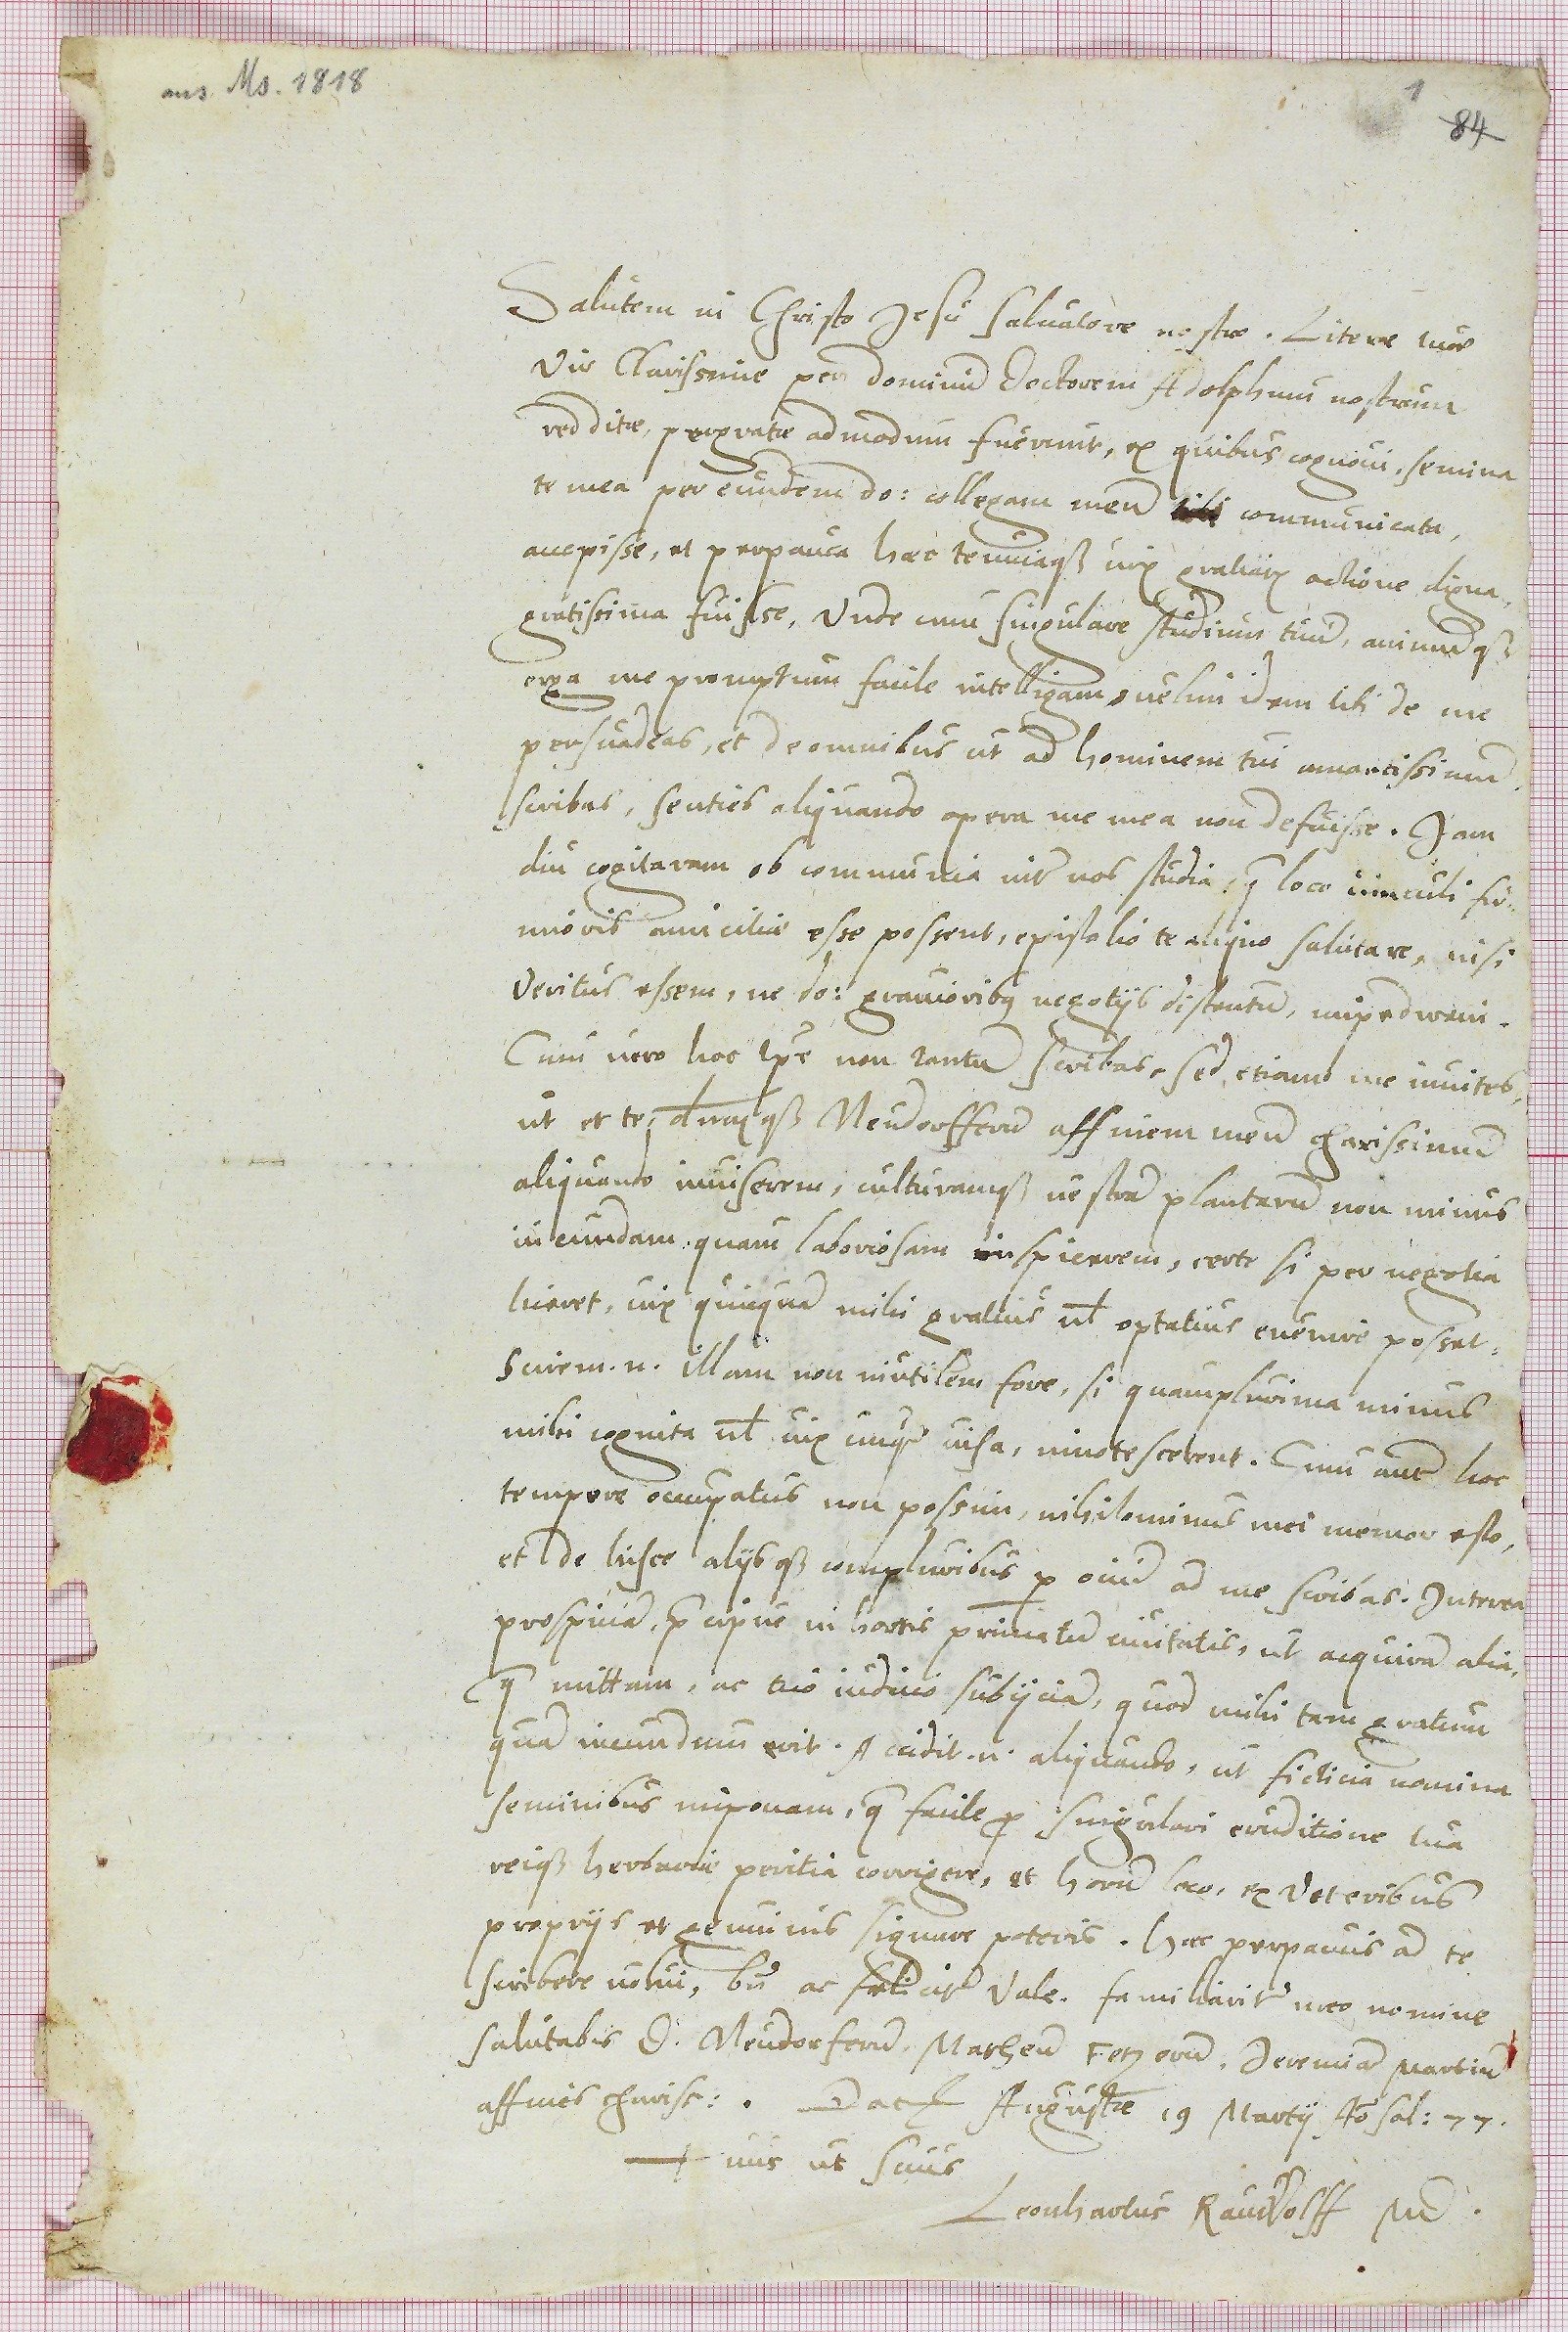 aus Ms. 1818
1
84
Salutem in Christo Jesu salvatore nostro. Literae tuae
Vir Clarissime per dominum doctorem Adolphum nostrum
redditae, pergratae admodum fuerunt, ex quibus cognovi, semina
te mea per eundem do: collegam meũ communicata,
accepisse, et perpauca haec tenuiaqꝫ vix gratiarꝫ actione digna,
gratissima fuisse. Unde cum singulare studium tuũ, animũqꝫ
erga me promptum facile intelligam, velim idem tibi de me
persuadeas, et de omnibus ut ad hominem tui amantissimũ
scribas, senties aliquando opera me mea non defuisse. Jam
diu cogitaram ob communia inter nos studia, q̃ loco vinculi fir-
mioris amicitiae esse possent, epistolio te aliquo salutare, nisi
Veritus essem, ne do: gravioribꝫ negotijs distentũ, impedirem.
Cum vero hoc tp̃re non tantũ scribas, sed etiam me invites,
ut et te, Neudorfferũ affinem meũ charissimũ
aliquando inviserem, culturamqꝫ vestrã plantarũ non minus
iucundam quam laboriosam inspicerem, certe si per negotia
liceret, vix quicquã mihi gratius vl̃ optatius evenire posset.
Scirem .n. illam non inutilem fore, si quamplurima minus
mihi cognita vl̃ vix unq̃ visa, innotescerent. Cum autẽ hoc
tempore occupatus non possim, nihilominus mei memor esto,
et de hisce alijsqꝫ compluribus p ad me scribas. Interea
prospiciã, p̃cipue in hortis primatũ civitatis, ut acquirã alia,
q̃ mittam, ac tuo iudicio subijciã, quod mihi tam gratum
quã iucundum erit. Accidit .n. aliquando, ut fictitia nomina
seminibus imponam, q̃ facile p singulari eruditione tua
reiqꝫ herbariae peritia corrigere, et horũ loco, ex Veteribus
proprijs et genuinis signare poteris. Haec perpaucis ad te
scribere volui, bñ ac felicitr̃ Vale. familiaritr̃ meo nomine
salutabis D. Neudorferũ, Matheũ Fetzerũ, Jeremiã Martiũ
affines chariss: . Datꝫ Augustae 19 Martij Ao sal: 77.
tuus ut suus
Leonhartus Rauwolff MD.